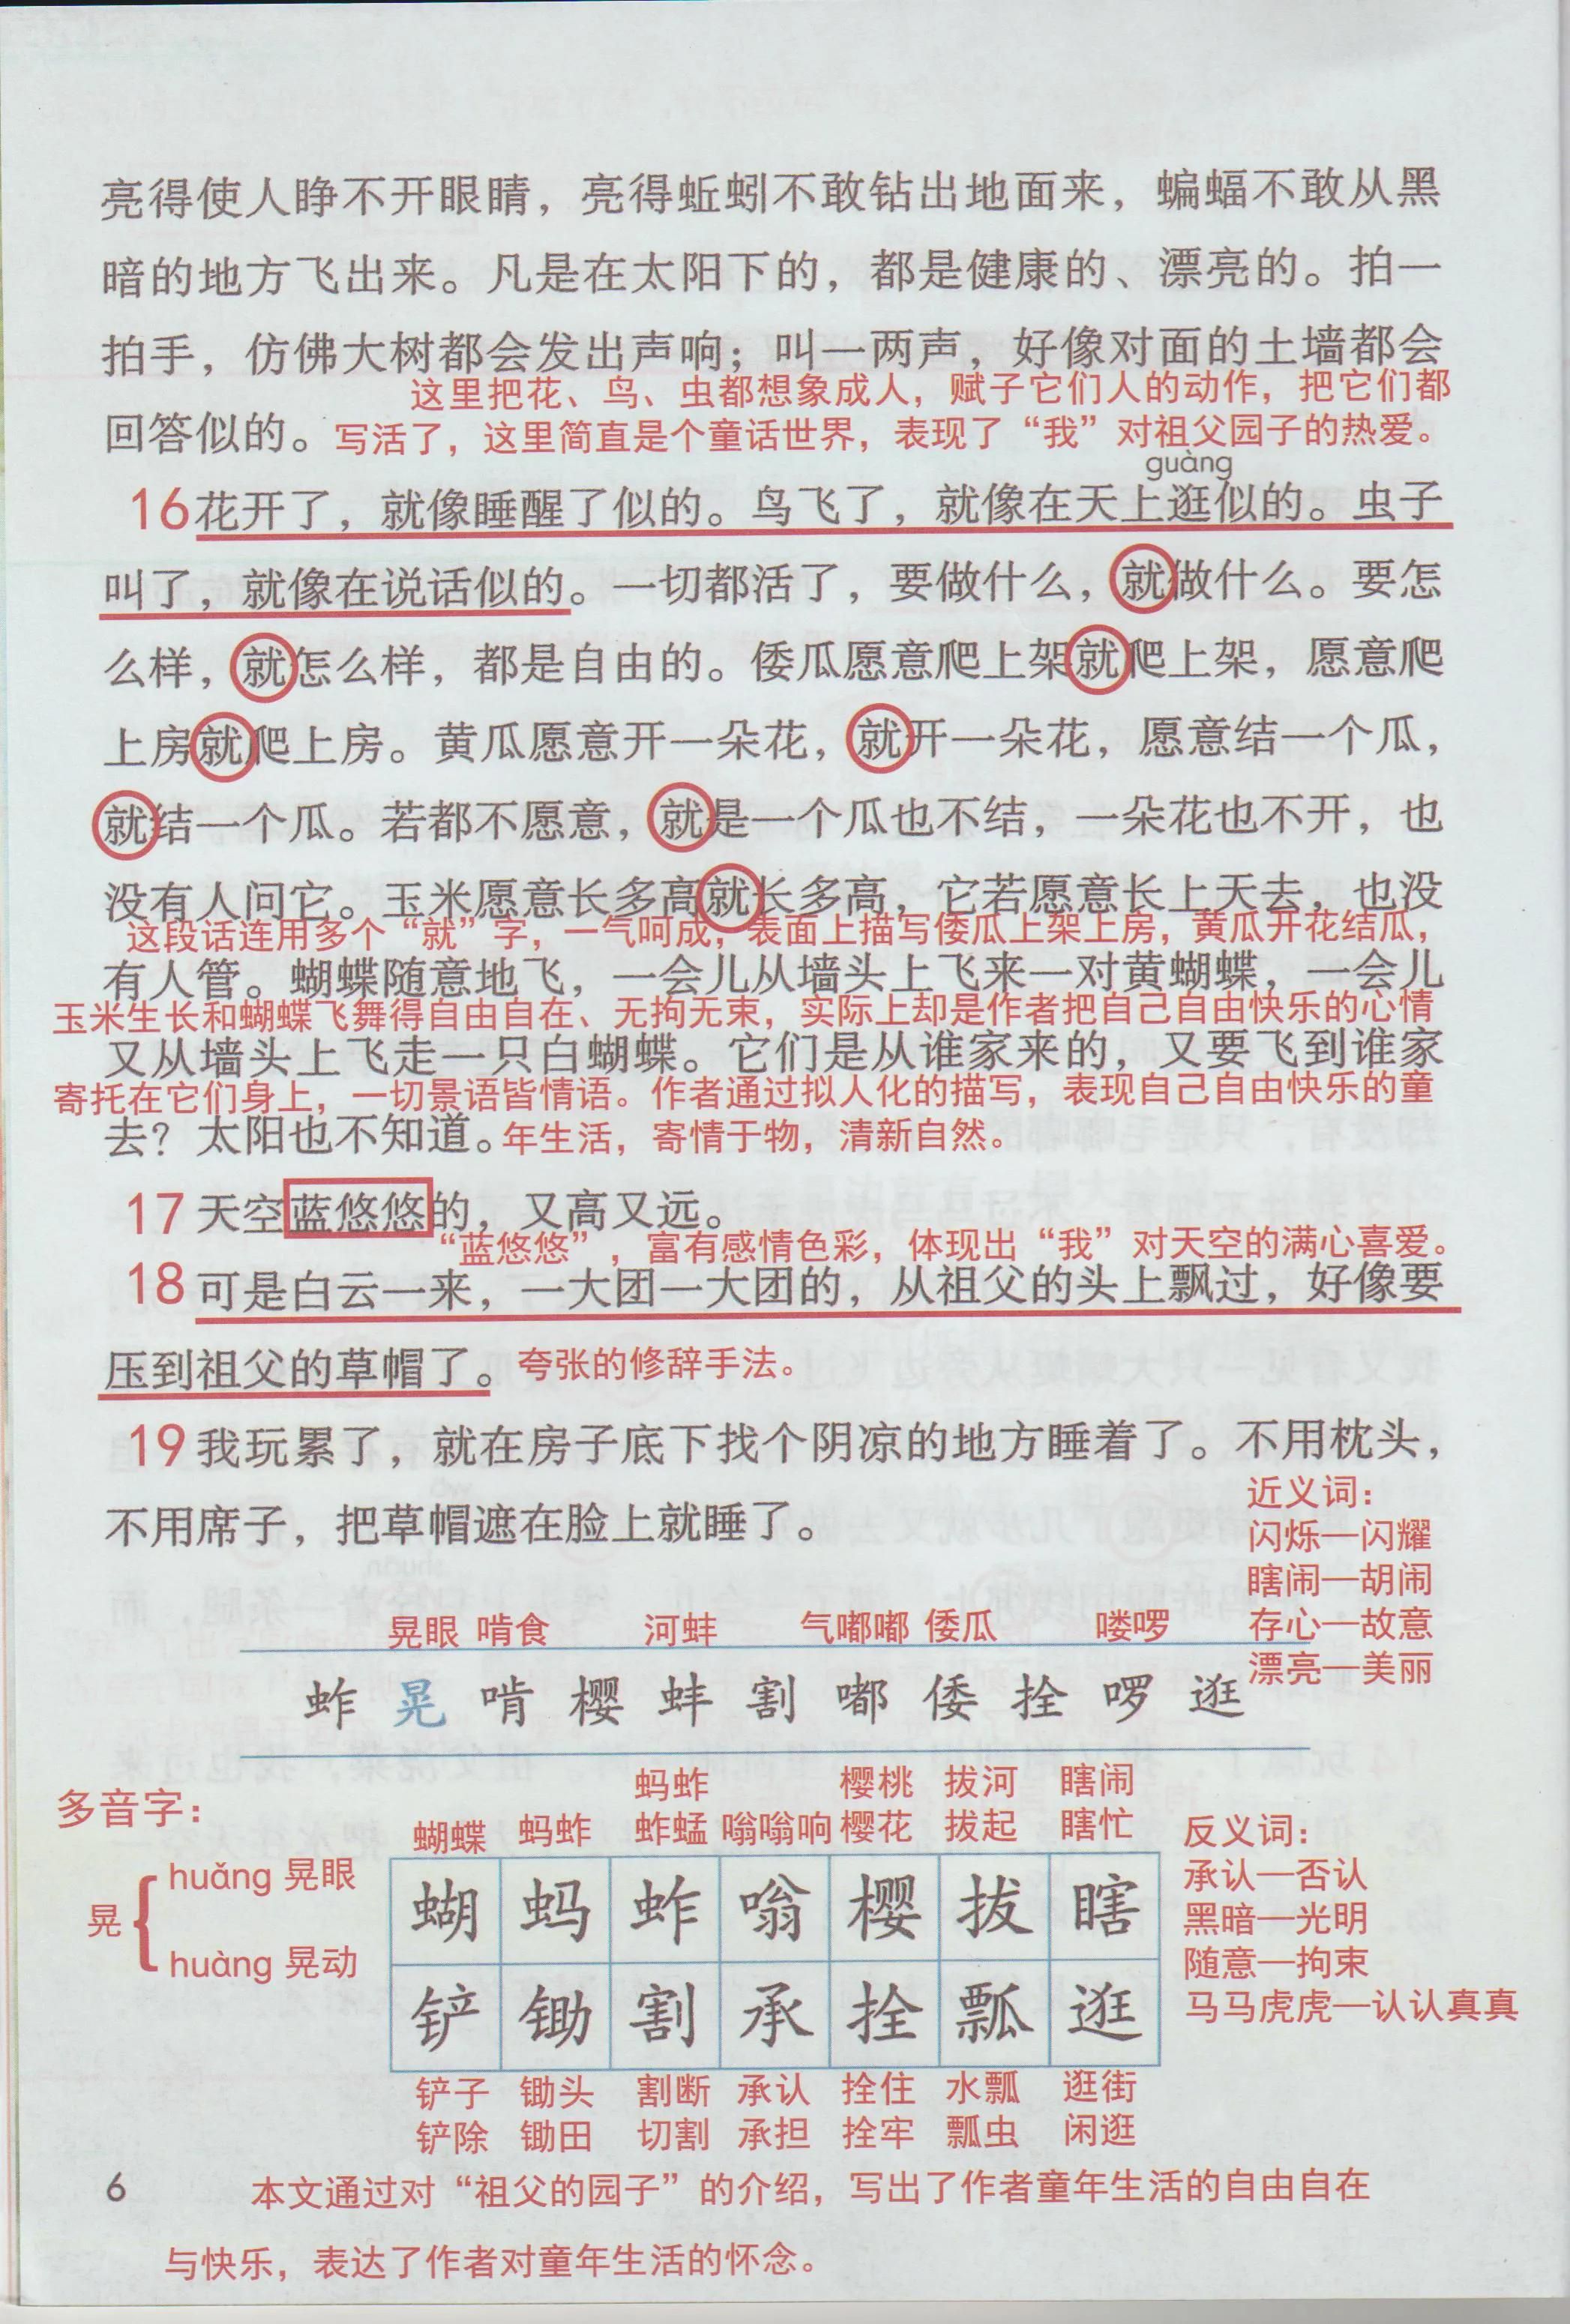 亮得使人睁不开眼睛，亮得蚯蚓不敢钻出地面来，蝙蝠不敢从黑
暗的地方飞出来。凡是在太阳下的，都是健康的、漂亮的。拍一
拍手，仿佛大树都会发出声响；叫一两声，好像对面的土墙都会
这里把花、鸟、虫都想象成人，赋予它们人的动作，把它们都
回答似的。写活了，这里简直是个童话世界，表现了“我”对祖父园子的热爱。
guàng
16花开了，就像睡醒了似的。鸟飞了，就像在天上逛似的。虫子
叫了，就像在说话似的。一切都活了，要做什么，就做什么。要怎
么样，就怎么样，都是自由的。倭瓜愿意爬上架就爬上架，愿意爬
上房就爬上房。黄瓜愿意开一朵花，就开一朵花，愿意结一个瓜，
就结一个瓜。若都不愿意，就是一个瓜也不结，一朵花也不开，也
没有人问它。玉米愿意长多高就长多高，它若愿意长上天去，也没
这段话连用多个“就”字，一气呵成，表面上描写倭瓜上架上房，黄瓜开花结瓜，
有人管。蝴蝶随意地飞，一会儿从墙头上飞来一对黄蝴蝶，一会儿
玉米生长和蝴蝶飞舞得自由自在、无拘无束，实际上却是作者把自己自由快乐的心情
又从墙头上飞走一只白蝴蝶。它们是从谁家来的，又要飞到谁家
寄托在它们身上，一切景语皆情语。作者通过拟人化的描写，表现自己自由快乐的童
去？太阳也不知道。年生活，寄情于物，清新自然。
17 天空蓝悠悠的，又高又远。
“蓝悠悠”，富有感情色彩，体现出“我”对天空的满心喜爱。
18 可是白云一来，一大团一大团的，从祖父的头上飘过，好像要
压到祖父的草帽了。夸张的修辞手法。
19 我玩累了，就在房子底下找个阴凉的地方睡着了。不用枕头，
不用席子，把草帽遮在脸上就睡了。
近义词：
闪烁—闪耀
瞎闹—胡闹
存心—故意
漂亮—美丽
晃眼 啃食 河蚌 气嘟嘟 倭瓜 喽啰
蚱 晃 啃 樱 蚌 割 嘟 倭 拴 啰 逛
多音字：
晃
huǎng 晃眼
huàng 晃动
蚂蚱 樱桃 拔河 瞎闹
蝴蝶 蚂蚱 蚱蜢 嗡嗡响 樱花 拔起 瞎忙
蝴 蚂 蚱 嗡 樱 拔 瞎
铲 锄 割 承 拴 瓢 逛
铲子 锄头 割断 承认 拴住 水瓢 逛街
铲除 锄田 切割 承担 拴牢 瓢虫 闲逛
反义词：
承认—否认
黑暗—光明
随意—拘束
马马虎虎—认认真真
6
本文通过对“祖父的园子”的介绍，写出了作者童年生活的自由自在
与快乐，表达了作者对童年生活的怀念。